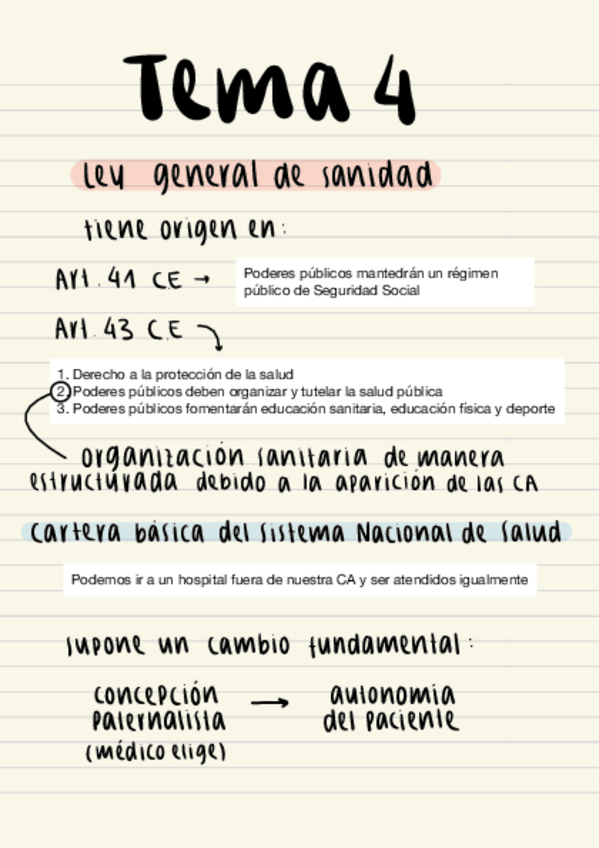 Tema 4
Ley general de sanidad
tiene origen en:
Art. 41 CE → Poderes públicos mantedrán un régimen
público de Seguridad Social
Art. 43 CE
1. Derecho a la protección de la salud
2. Poderes públicos deben organizar y tutelar la salud pública
3. Poderes públicos fomentarán educación sanitaria, educación física y deporte
organización sanitaria de manera
estructurada debido a la aparición de las CA
Cartera básica del Sistema Nacional de Salud
Podemos ir a un hospital fuera de nuestra CA y ser atendidos igualmente
supone un cambio fundamental:
concepción → autonomía
paternalista del paciente
(médico elige)